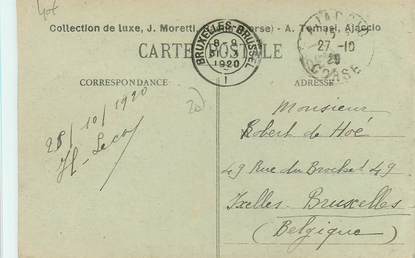 40f
Collection de luxe, J. Moretti, Corse) - A. Tomasi, Ajaccio
CARTE POSTALE
BRUXELLES-BRUSSEL
1920
1
27-10
20
CORSE
CORRESPONDANCE
ADRESSE
28/10/1920
20
Monsieur
Robert de Hoé
49 Rue du Brochet 49
Ixelles Bruxelles
(Belgique)